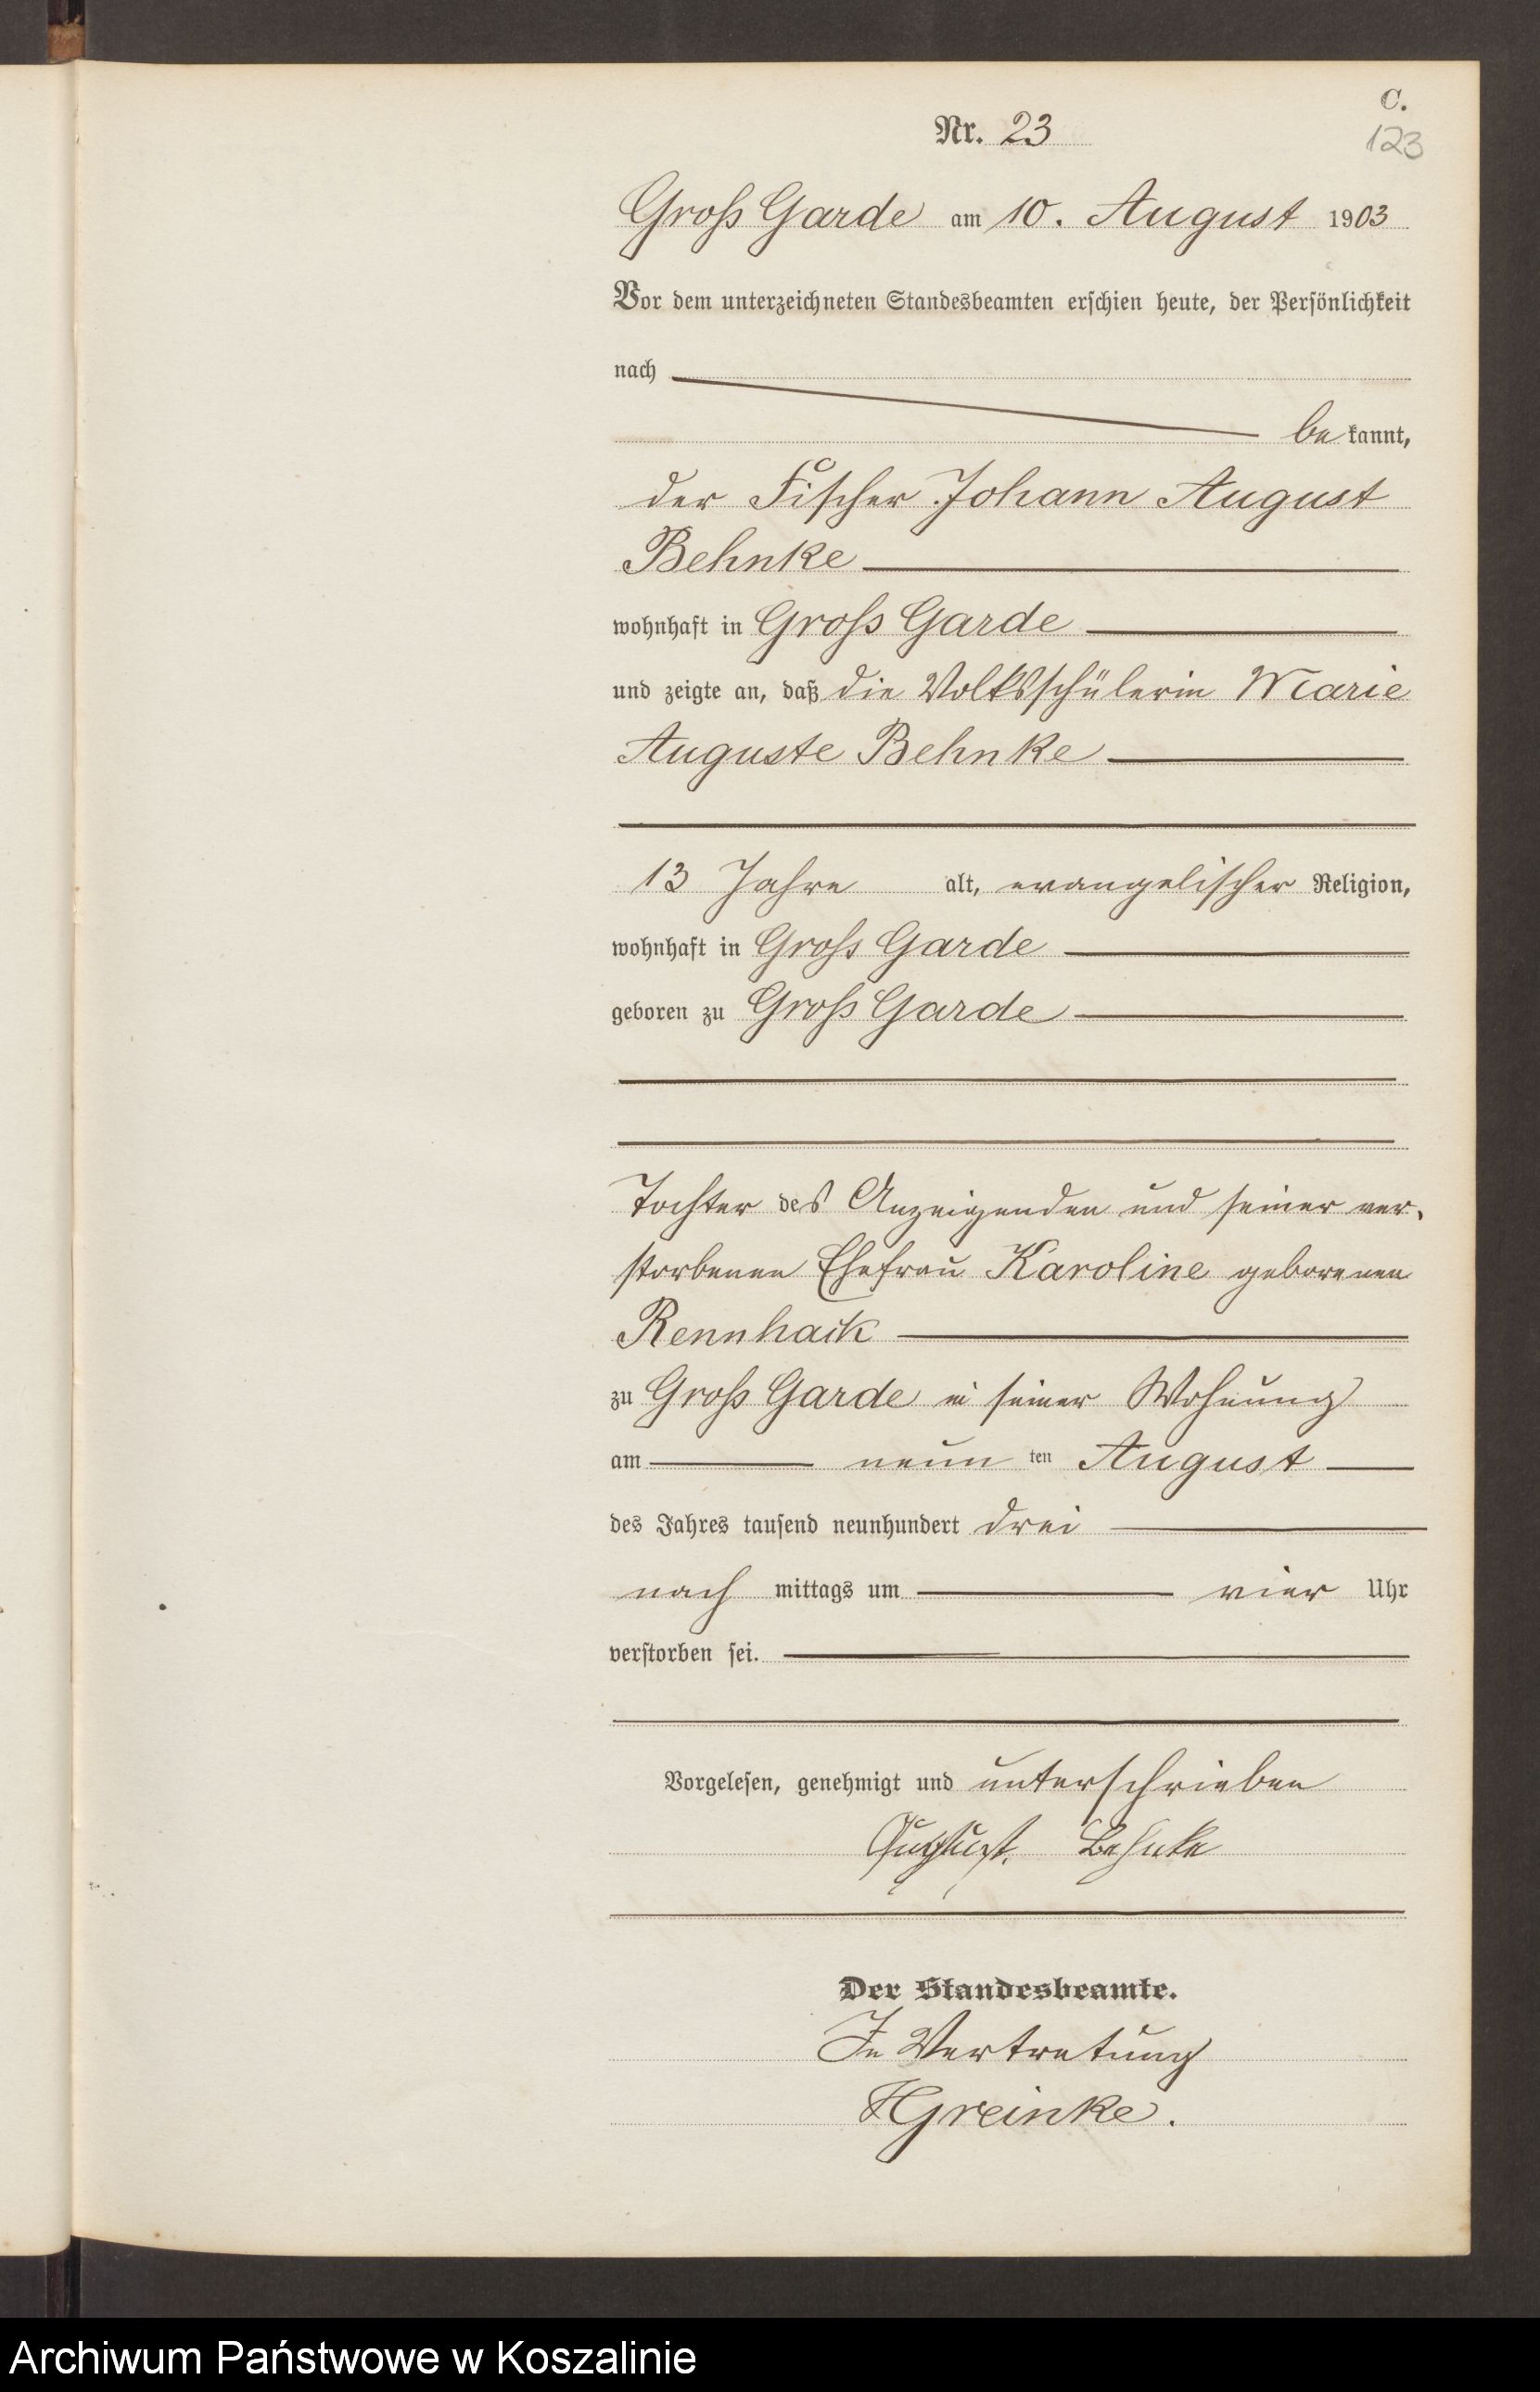 C.
Nr. 23
123
Gross Garde am 10. August 1903
Vor dem unterzeichneten Standesbeamten erschien heute, der Persönlichkeit
nach
be kannt,
der Fischer Johann August
Behnke
wohnhaft in Gross Garde
und zeigte an, daß die Volksschülerin Marie
Auguste Behnke
13 Jahre alt, evangelischer Religion,
wohnhaft in Gross Garde
geboren zu Gross Garde
Tochter des Anzeigenden und seiner ver-
storbenen Ehefrau Karoline geborenen
Rennhack
zu Gross Garde in seiner Wohnung
am neun ten August
des Jahres tausend neunhundert drei
nach mittags um vier Uhr
verstorben sei.
Vorgelesen, genehmigt und unterschrieben
August Behnke
Der Standesbeamte.
In Vertretung
HGreinke.
Archiwum Państwowe w Koszalinie